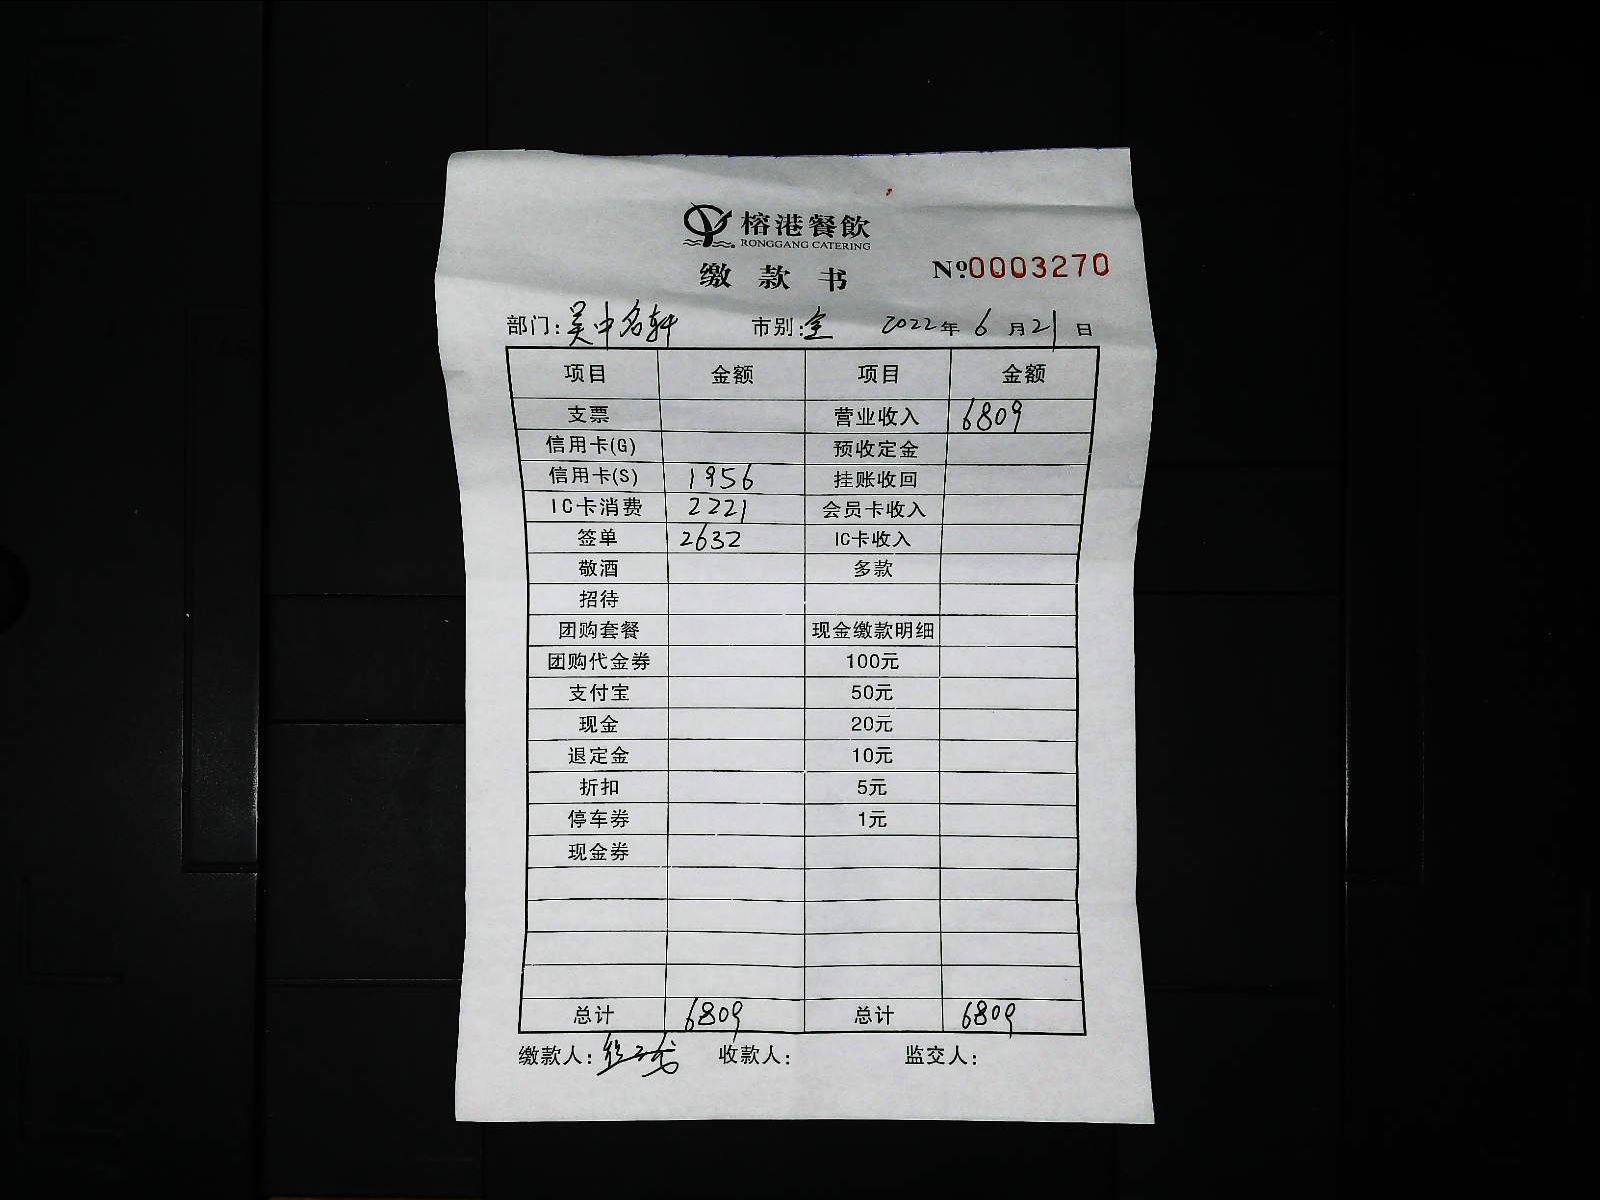 榕港餐飲
RONGGANG CATERING
缴款书
№0003270
部门:吴中名轩 市别:全 2022年6月21日
项目 金额 项目 金额
支票 营业收入 6809
信用卡(G) 预收定金
信用卡(S) 1956 挂账收回
IC卡消费 2221 会员卡收入
签单 2632 IC卡收入
敬酒 多款
招待
团购套餐 现金缴款明细
团购代金券 100元
支付宝 50元
现金 20元
退定金 10元
折扣 5元
停车券 1元
现金券
总计 6809 总计 6809
缴款人: 收款人: 监交人: